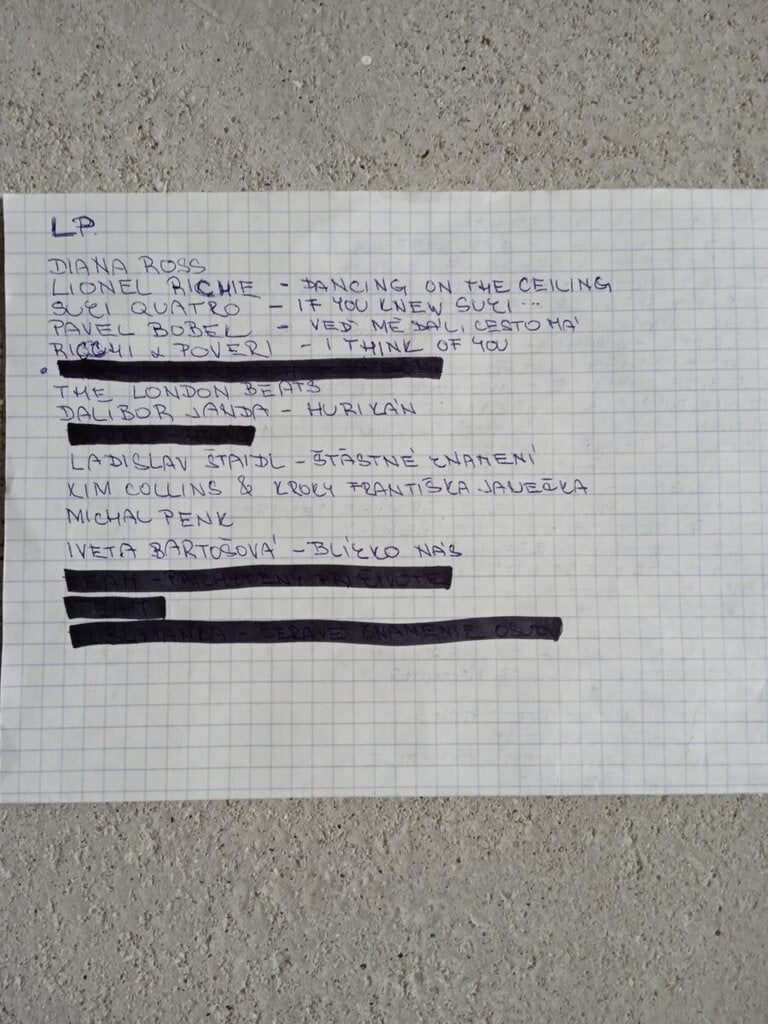 LP.
DIANA ROSS
LIONEL RICHIE - DANCING ON THE CEILING
SUZI QUATRO - IF YOU KNEW SUZI...
PAVEL BOBEK - VEĎ MĚ DÁL, CESTO MÁ
RICCHI & POVERI - I THINK OF YOU
THE LONDON BEATS
DALIBOR JANDA - HURIKÁN
LADISLAV ŠTAIDL - ŠTASTNÉ ZNAMENÍ
KIM COLLINS & KROKY FRANTIŠKA JANEČKA
MICHAL PENK
IVETA BARTOŠOVÁ - BLÍZKO NÁS
TEAM - PRICHYTENÝ PRI ŽIVOTE
TEAM
BLATANKA - ČERAVÉ ZNAMENIE OSUDU